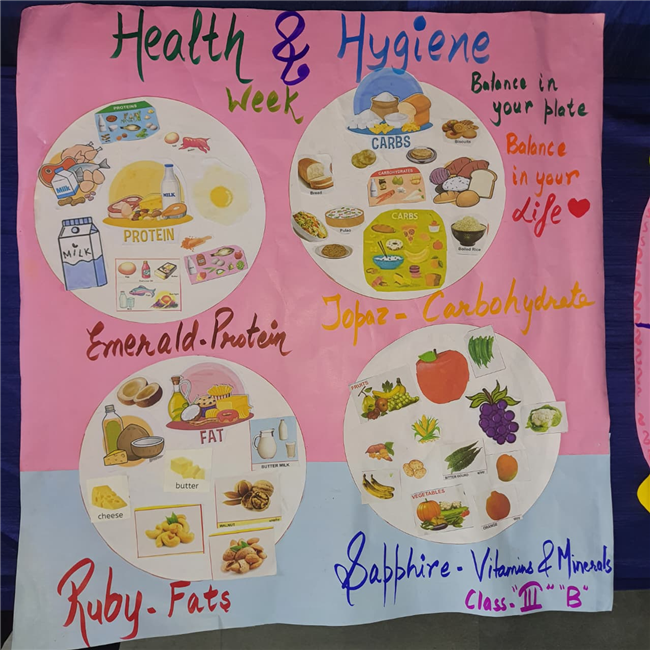 Health & Hygiene
Week
Balance in
your plate
Balance
in your
Life
PROTEINS
MILK
MILK
PROTEIN
MILK
CARBS
Biscuits
Bread
CARBOHYDRATES
Pulses
CARBS
Boiled Rice
Emerald - Protein
Topaz - Carbohydrate
FAT
BUTTER MILK
butter
cheese
WALNUT
FRUITS
BITTER GOURD
VEGETABLES
ORANGE
Ruby - Fats
Sapphire - Vitamins & Minerals
Class - "III" "B"